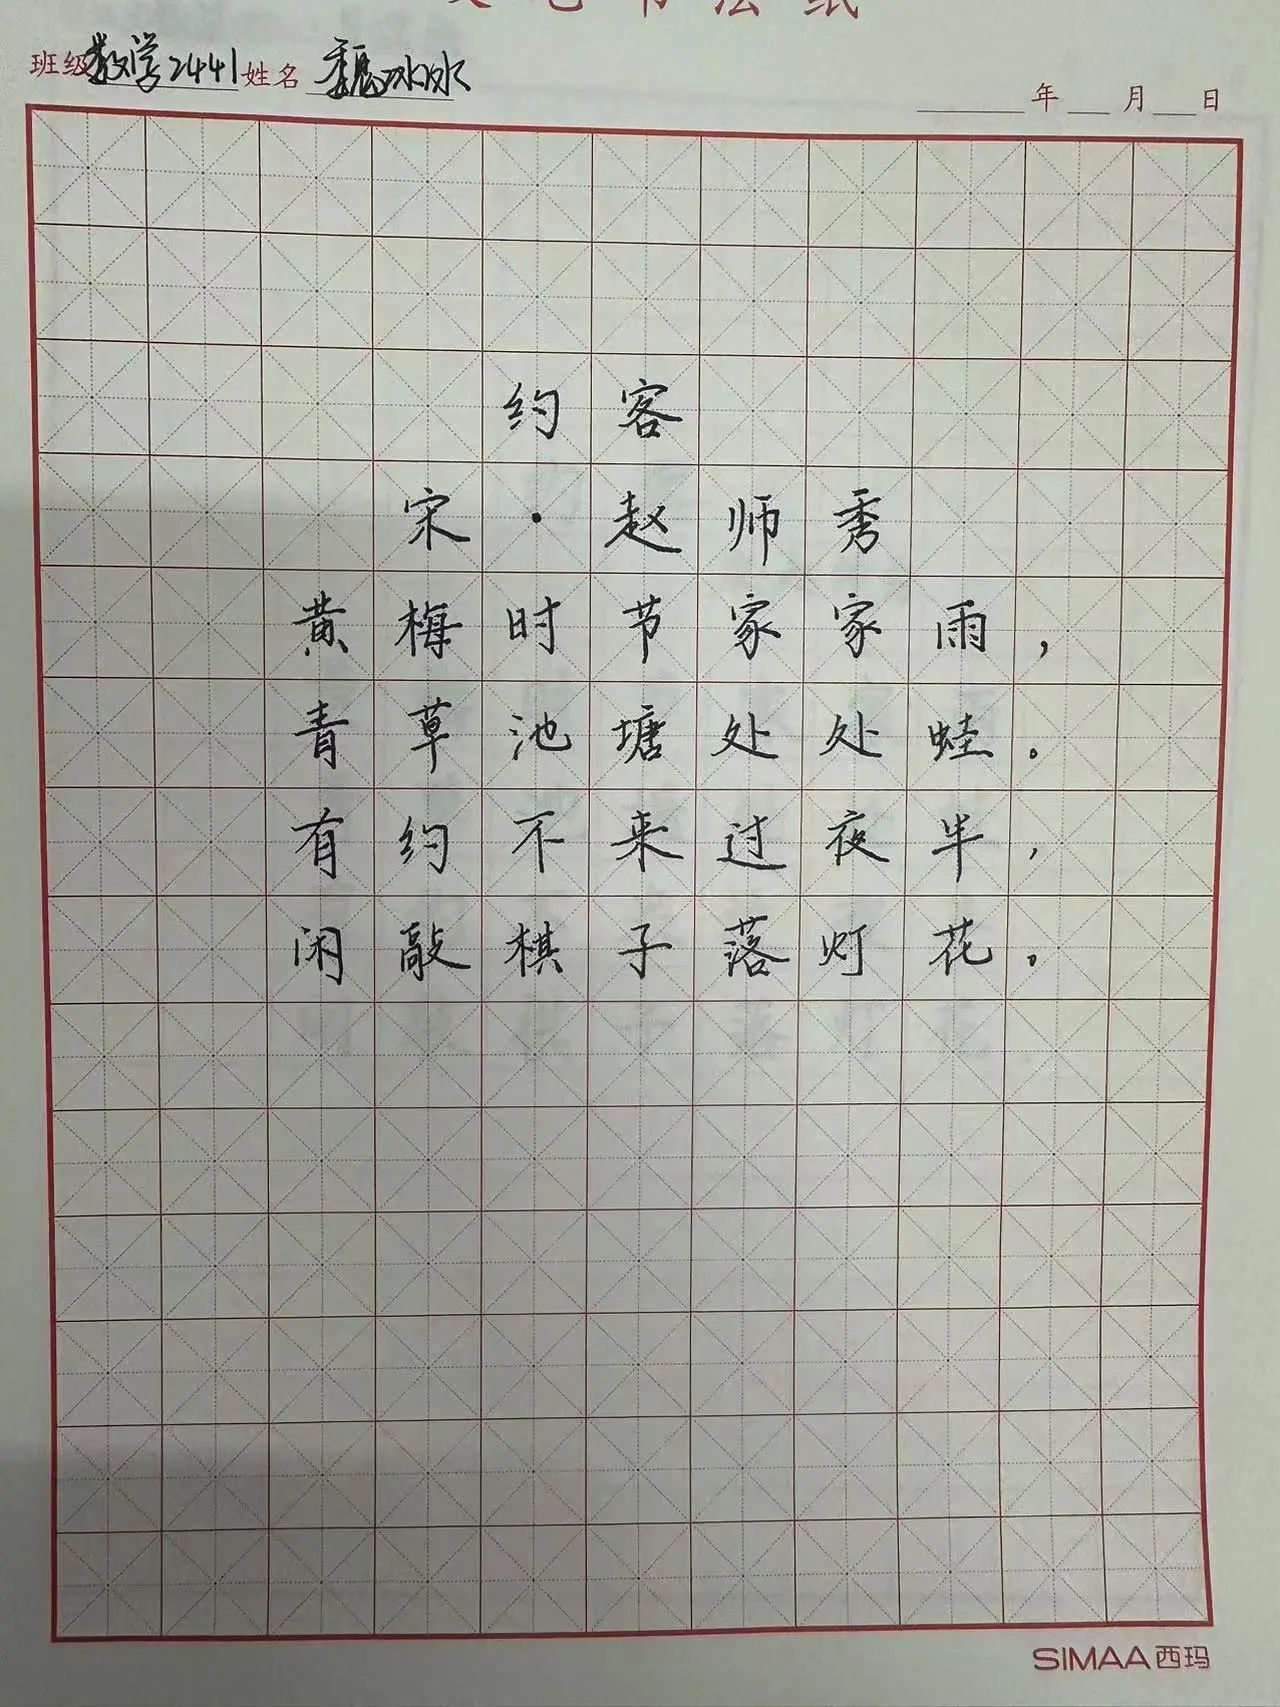 书法纸
班级 数学2441 姓名 魏冰冰
年 月 日
约客
宋·赵师秀
黄梅时节家家雨，
青草池塘处处蛙。
有约不来过夜半，
闲敲棋子落灯花。
SIMAA西玛